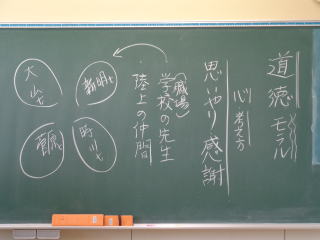 道徳モラル
心・考え方
思いやり感謝
(職場)
学校の先生
・陸上の仲間
新明七
時川七
大山七